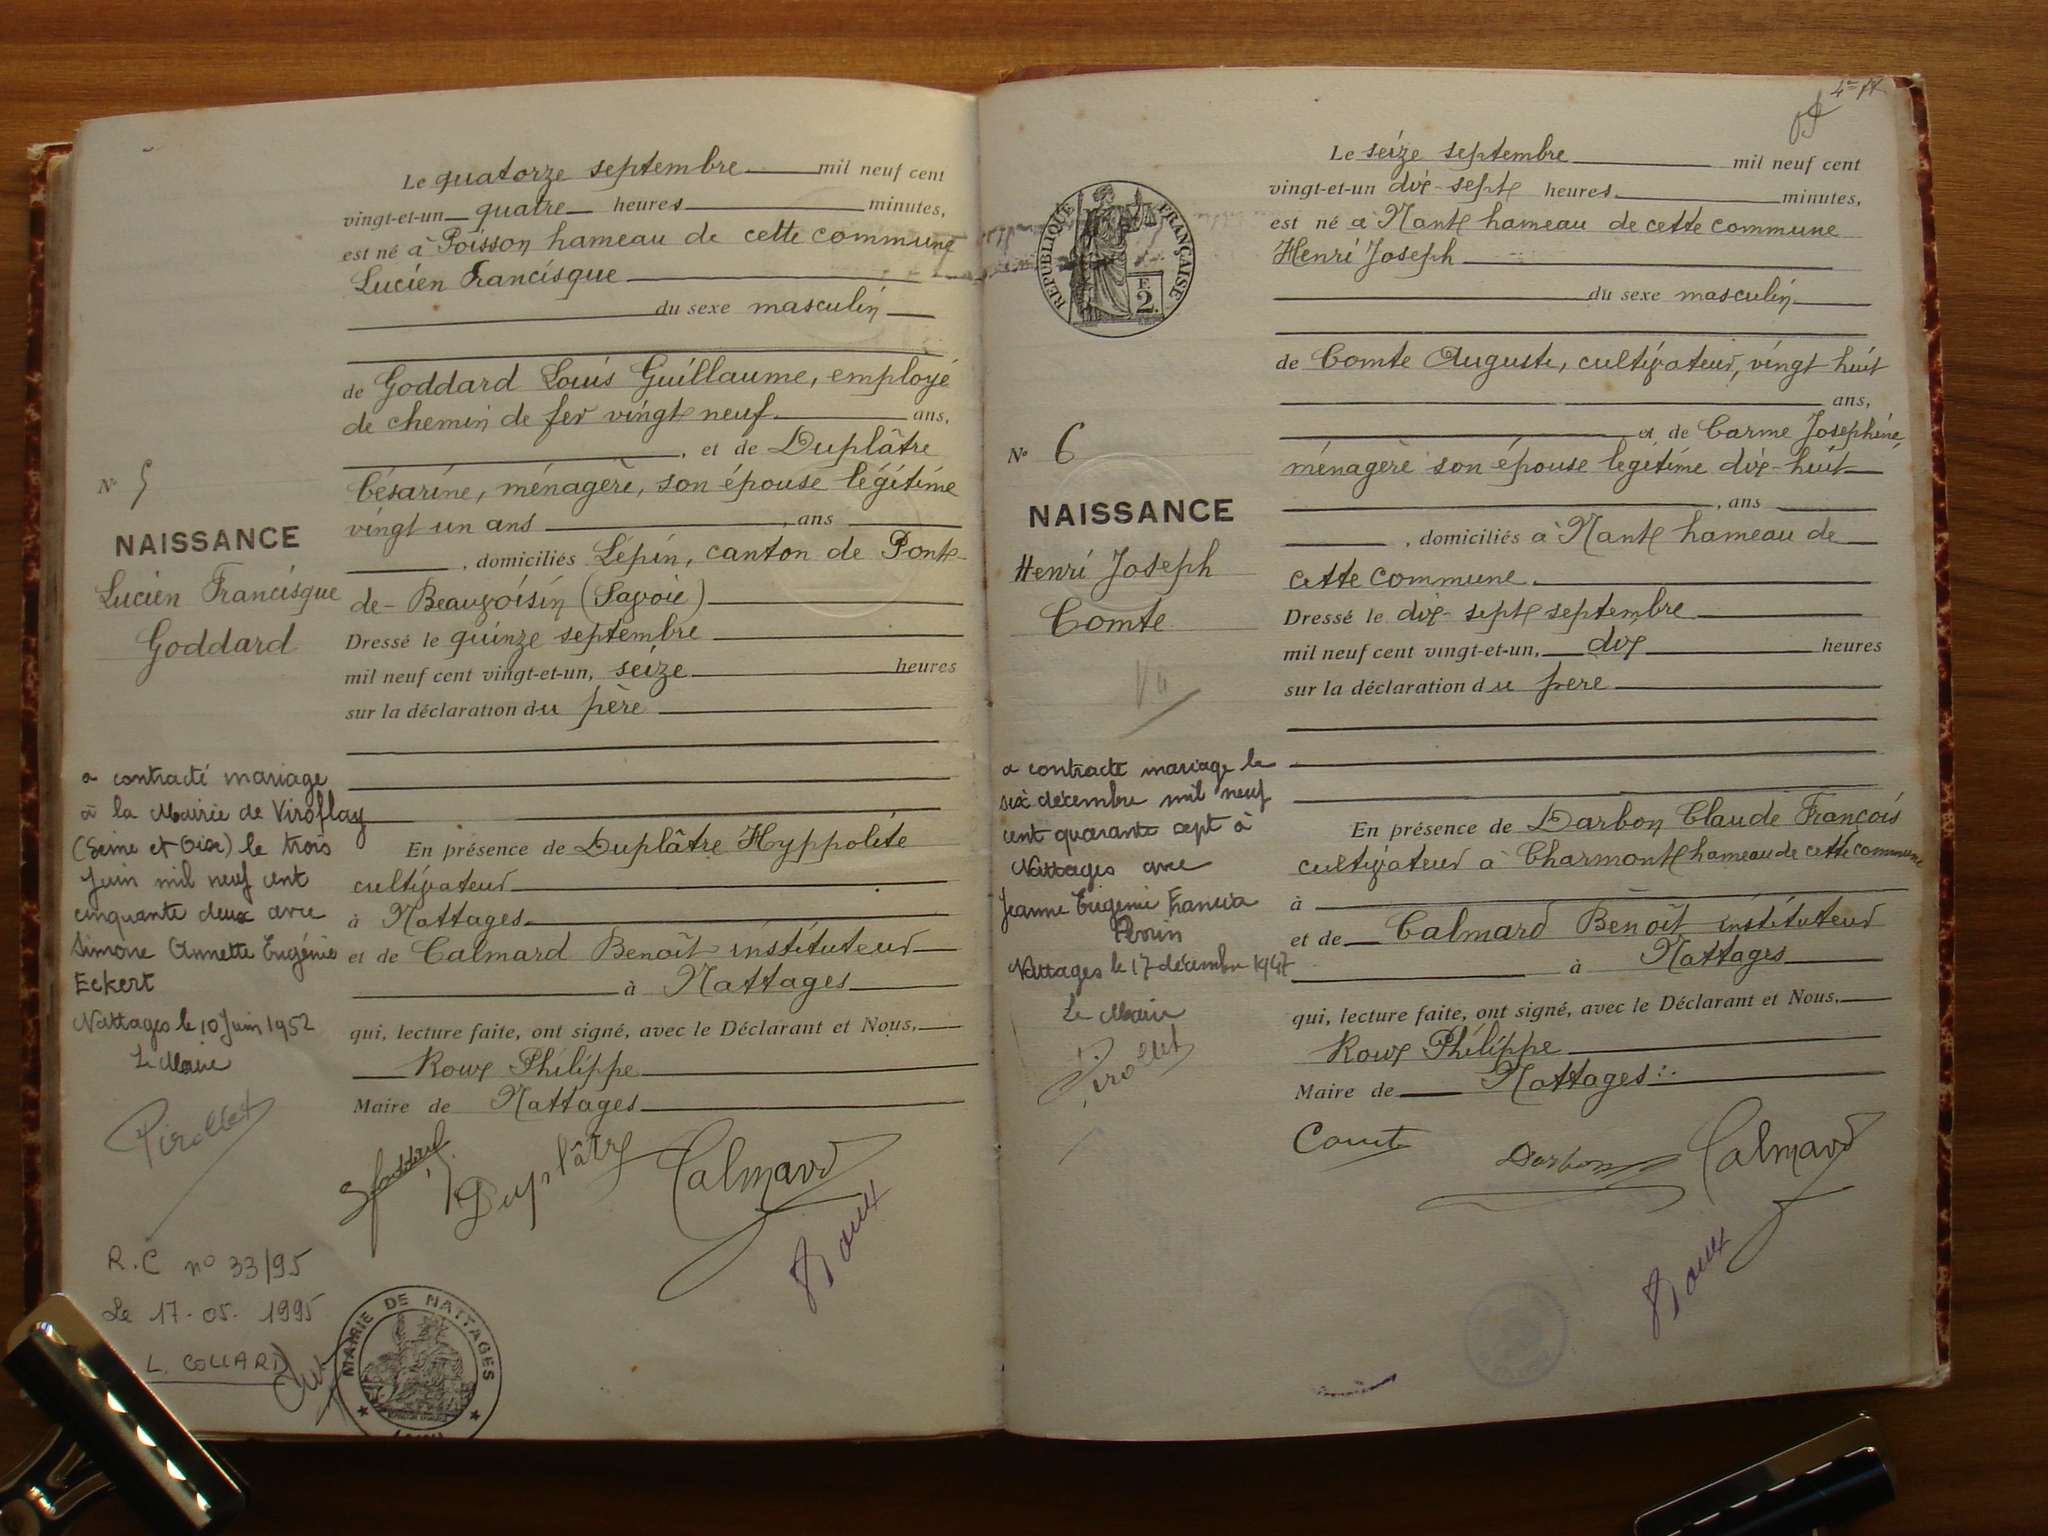 Le quatorze septembre mil neuf cent
vingt-et-un quatre heures minutes,
est né à Poisson hameau de cette commune
Lucien Francisque
du sexe masculin
de Goddard Louis Guillaume, employé
de chemin de fer vingt neuf ans,
, et de Duplâtre
Césarine, ménagère, son épouse légitime
vingt un ans , ans
, domiciliés Lépin, canton de Pont-
de-Beauvoisin (Savoie)
Dressé le quinze septembre
mil neuf cent vingt-et-un, seize heures
sur la déclaration du père
En présence de Duplâtre Hyppolite
cultivateur
à Nattages
et de Calmard Benoît instituteur
à Nattages
qui, lecture faite, ont signé, avec le Déclarant et Nous,
Roux Philippe
Maire de Nattages
Goddard Duplâtre Calmard
Roux
N° 5
NAISSANCE
Lucien Francisque
Goddard
a contracté mariage
à la Mairie de Viroflay
(Seine et Oise) le trois
Juin mil neuf cent
cinquante deux avec
Simone Annette Eugénie
Eckert
Nattages le 10 Juin 1952
Le Maire
Pirollet
R.C n° 33/95
Le 17-05-1995
L. COLLARD
MAIRIE DE NATTAGES
4e ft
REPUBLIQUE FRANÇAISE
F.
2.
N° 6
NAISSANCE
Henri Joseph
Comte
Vu
a contracté mariage le
six décembre mil neuf
cent quarante sept à
Nattages avec
Jeanne Eugénie
Nattages le 17 décembre 1947
Le Maire
Pirollet
Le seize septembre mil neuf cent
vingt-et-un dix-sept heures minutes,
est né à Nant hameau de cette commune
Henri Joseph
du sexe masculin
de Comte Auguste, cultivateur, vingt huit
ans,
et de Carme Joséphine,
ménagère son épouse légitime dix-huit
, ans
, domiciliés à Nant hameau de
cette commune
Dressé le dix-sept septembre
mil neuf cent vingt-et-un, dix heures
sur la déclaration du père
En présence de Darbon Claude François
cultivateur à Charmont hameau de cette commune
à
et de Calmard Benoît instituteur
à Nattages
qui, lecture faite, ont signé, avec le Déclarant et Nous,
Roux Philippe
Maire de Nattages
Comte Darbon Calmard
Roux